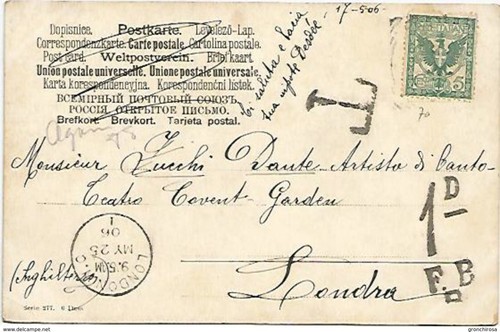 Dopisnice. Postkarte. Levelező-Lap.
Correspondenzkarte. Carte postale. Cartolina postale.
Post card. Weltpostverein. Briefkaart
Union postale universelle. Unione postale universale.
Karta korespondencyjna. Korespondenční listek.
ВСЕМІРНЫЙ ПОЧТОВЫЙ СОЮЗЪ.
РОССІЯ ОТКРЫТОЕ ПИСЬМО.
Brefkort. Brevkort. Tarjeta postal.
17-5-06
Vi saluta e bacia
T
Monsieur Zucchi Dante-Artista di Canto-
Teatro Covent-Garden
Londra
(Inghilterra)
LONDON
9.5 AM
MY 25
06
1D
F.B
Serie 277.
gronchirosa